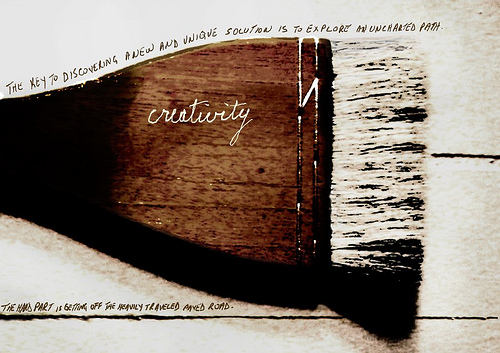 THE KEY TO DISCOVERING A NEW AND UNIQUE SOLUTION IS TO EXPLORE AN UNCHARTED PATH.
creativity
THE HARD PART is GETTING OFF THE HEAVILY TRAVELED PAVED ROAD.